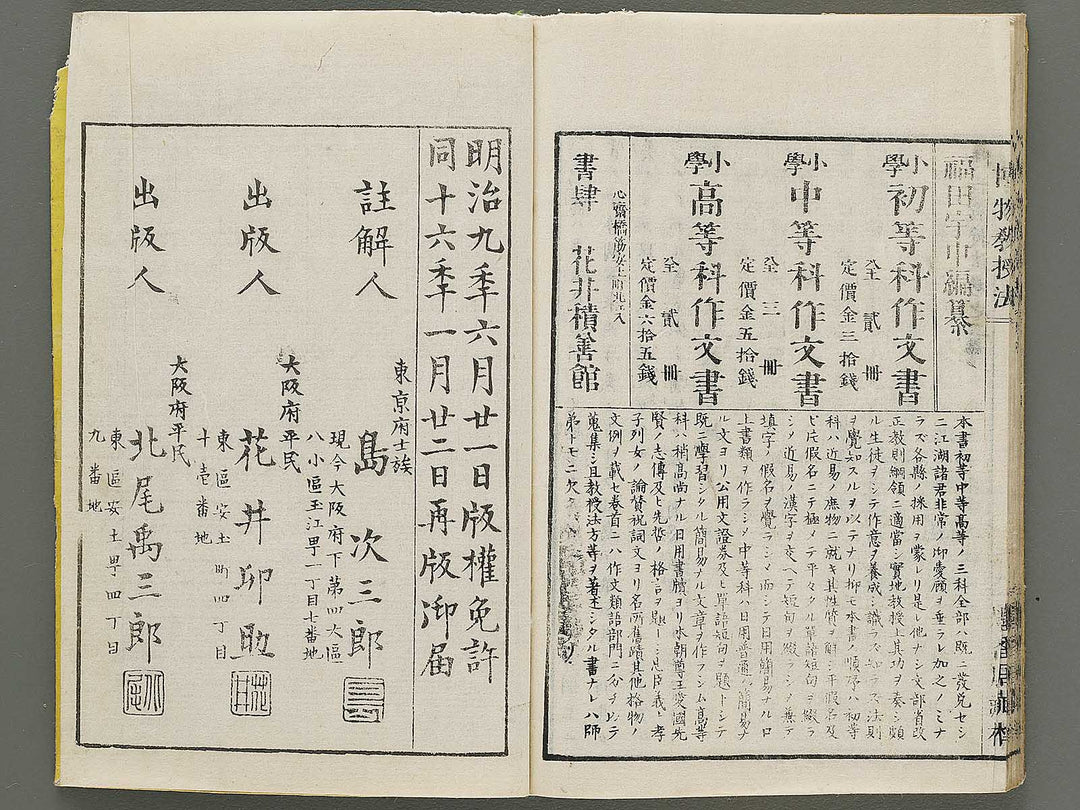 博物教授法
福田宇中編纂
小學初等科作文書
全貳冊
定價金三拾錢
小學中等科作文書
全三冊
定價金五拾錢
小學高等科作文書
全貳冊
定價金六拾五錢
心齋橋筋安土町北ヘ入
書肆 花井積善館
本書初等中等高等ノ三科全部ハ既ニ發兌セシ
ニ江湖諸君非常ノ御愛顧ヲ垂ラレ加之ノミナ
ラズ各縣ノ採用ヲ蒙レリ是レ他ナシ文部省改
正教則綱領ニ適當シ實地教授上其功ヲ奏シ頗
ル生徒ヲシテ作意ヲ養成シ識ラズ知ラズ法則
ヲ覺知スルヲ以テナリ抑モ本書ノ順序ハ初等
科ハ近易ノ庶物ニ就キ其性質ヲ解シ平假名及
ビ片假名ニテ極メテ平々タル單語短句ヲ綴ラ
シメ近易ノ漢字ヲ交ヘテ短句ヲ綴ラシ 兼テ
填字ノ假名ヲ覺ラシメ而シテ日用簡易ナル口
上書類ヲ作ラシメ中等科ハ日用普通ノ簡易ナ
ル文ヨリ公用文證券及ヒ單語短句ヲ題トシテ
既ニ學習シタル簡易ナル文章ヲ作ラシム高等
科ハ稍高尚ナル日用書牘ヨリ本朝尊王愛國先
賢ノ志傳及ヒ先哲ノ格言ヲ題 シ忠臣義 孝
子列女ノ論賛祝詞文ヨリ名所舊蹟其他格物ノ
文例ヲ載セ卷首ニハ作文類語部門ニ分 テ
蒐集シ且教授法方等ヲ著述シタル書ナレハ師
弟トモニ欠
明治九季六月廿一日版權免許
同十六季一月廿二日再版御届
東京府士族
註解人 島次三郎
現今大阪府下第四大區
八小區玉江町一丁目七番地
大阪府平民
出版人 花井卯助
東區安土町四丁目
十壱番地
大阪府平民
出版人 北尾禹三郎
東區安土町四丁目
九番地